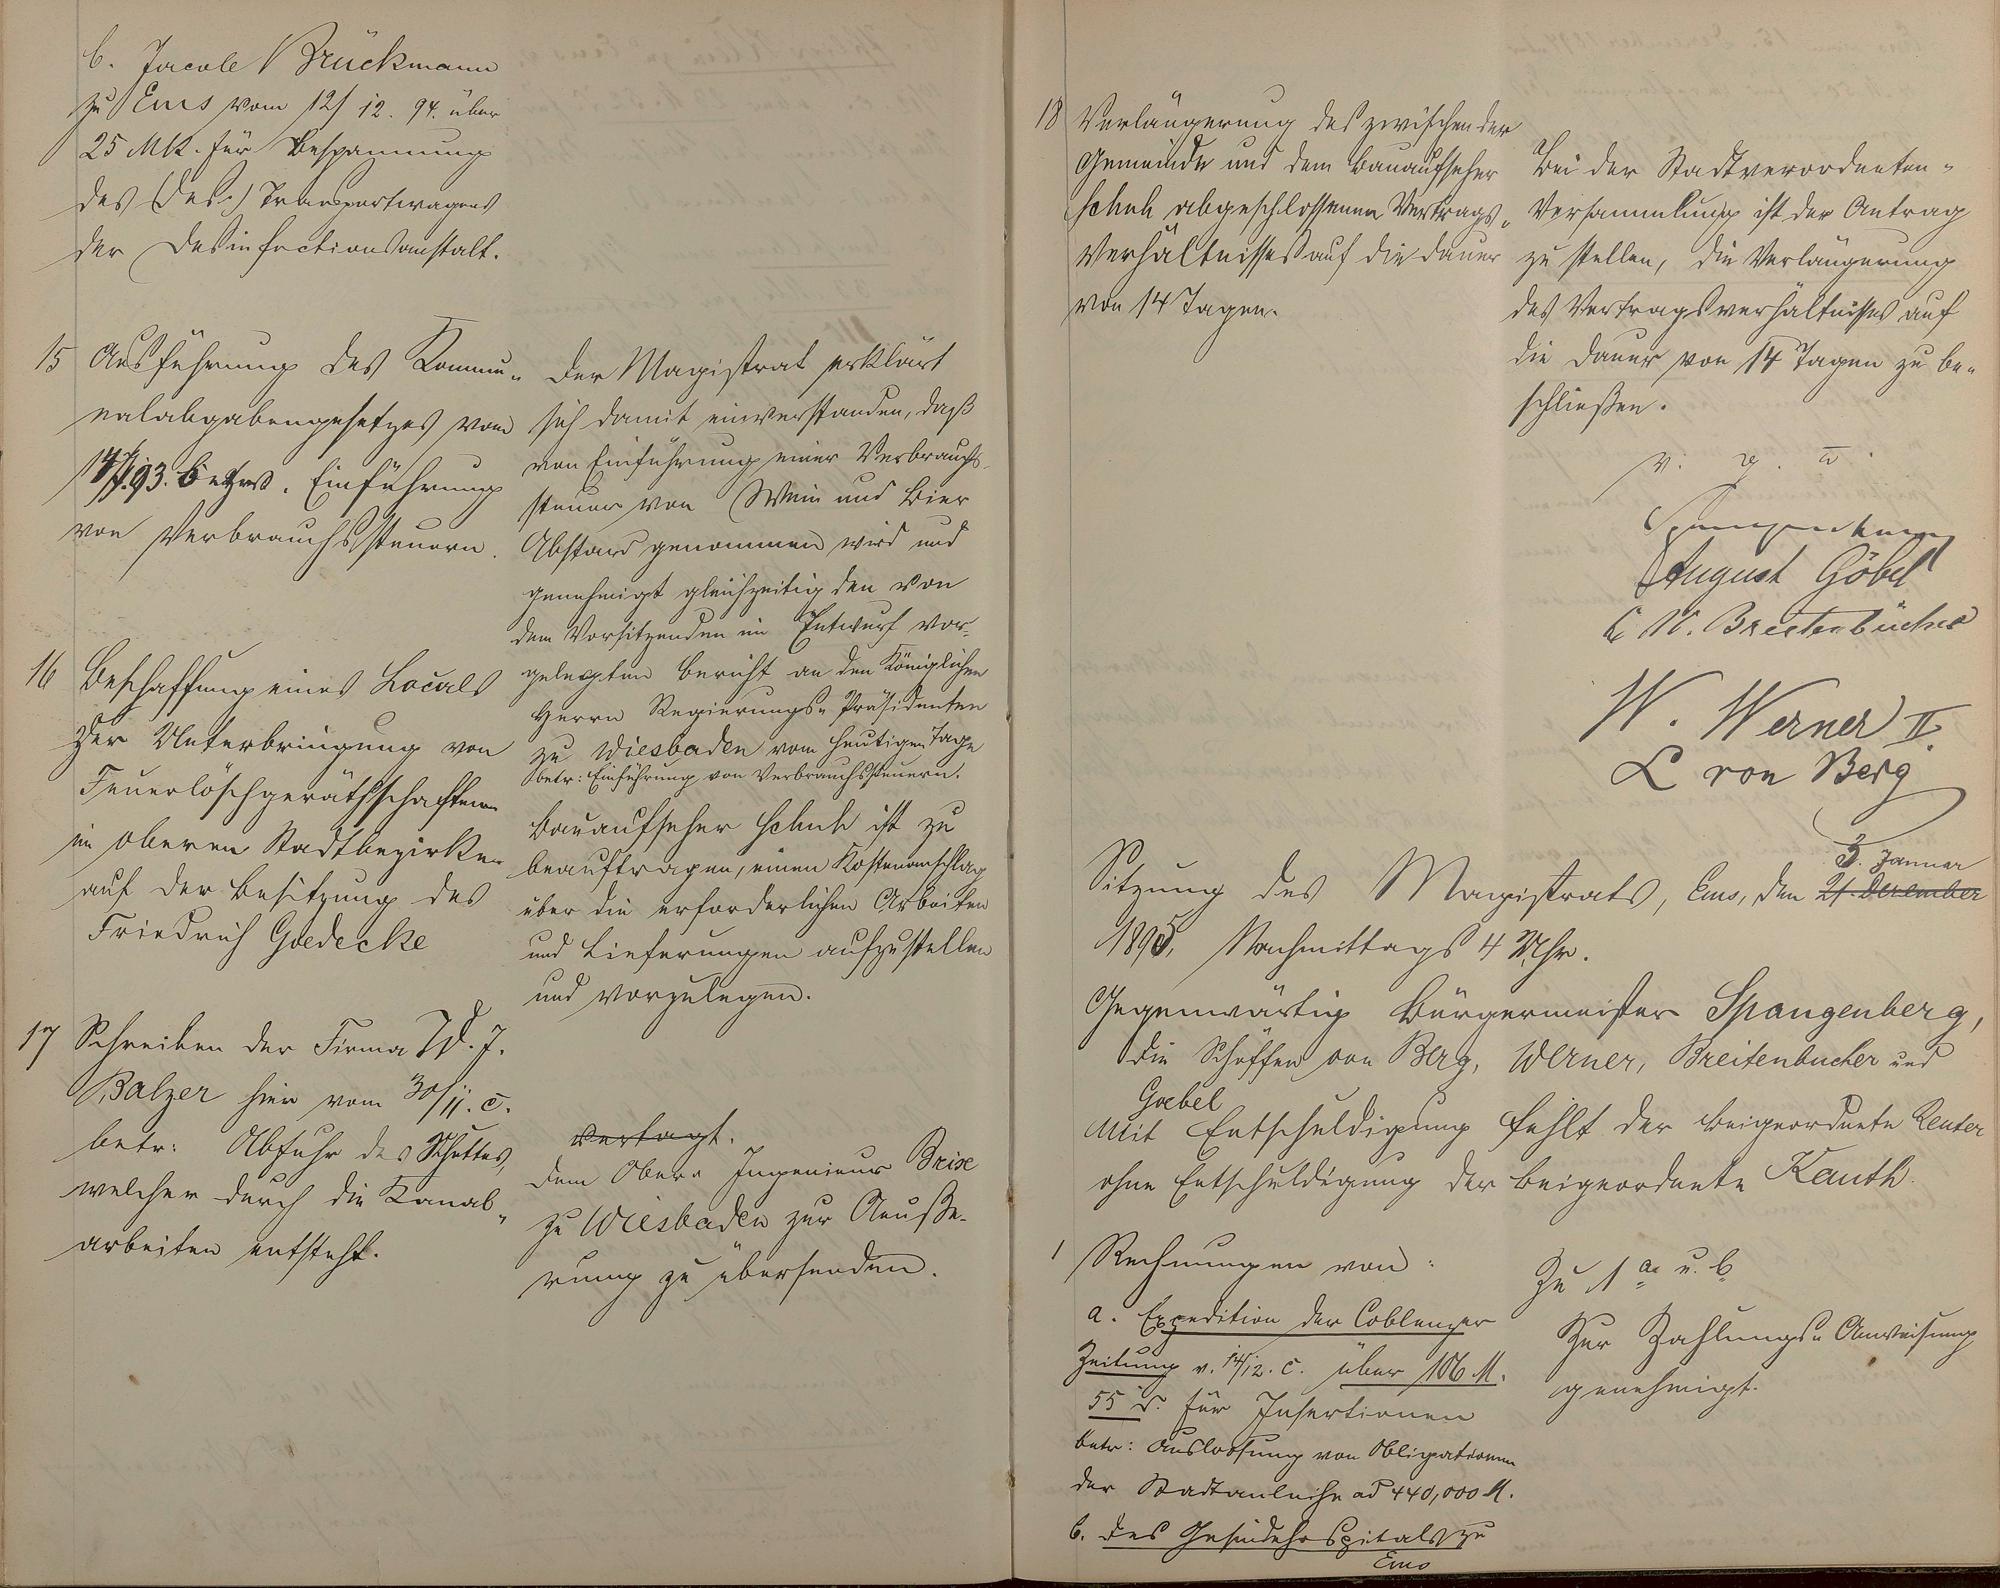 b. Jacob Brückmann
zu Ems vom 12/12. 94. über
25 Mk. für Bespannung
des (Des.) Transportwagens
der Desinfectionsanstalt.
15 Ausführung des Kommu-
nalabgabengesetzes vom
14/7.93. betr. Einführung
von Verbrauchssteuern.
Der Magistrat erklärt
sich damit einverstanden, daß
von Einführung einer Verbrauchs-
steuer von Wein und Bier
Abstand genommen wird und
genehmigt gleichzeitig den von
dem Vorsitzenden im Entwurf vor-
gelegten Bericht an den Königlichen
Herrn Regierungs-Präsidenten
zu Wiesbaden vom heutigen Tage
betr: Einführung von Verbrauchssteuern.
16 Beschaffung eines Locals
zur Unterbringung von
Feuerlöschgeräthschaften
im oberen Stadtbezirke
auf der Besitzung des
Friedrich Goedecke
Bauaufseher Schuh ist zu
beauftragen, einen Kostenanschlag
über die erforderlichen Arbeiten
und Lieferungen aufzustellen
und vorzulegen.
17 Schreiben der Firma W. J.
Balzer hier vom 30/11. c.
betr: Abfuhr des Schuttes,
welcher durch die Canal-
arbeiten entsteht.
vertagt.
Dem Ober-Ingenieur Brise
zu Wiesbaden zur Aeuße-
rung zu übersenden.
18 Verlängerung des zwischen der
Gemeinde und dem Bauaufseher
Schuh abgeschlossenen Vertrags-
Verhältnisses auf die Dauer
von 14 Tagen.
Bei der Stadtverordneten-
Versammlung ist der Antrag
zu stellen, die Verlängerung
des Vertragsverhältnisses auf
die Dauer von 14 Tagen zu be-
schließen.
v. g. u.
Spangenberg
August Göbel
C. W. Breitenbücher
W. Werner II.
L von Berg
3. Januar
Sitzung des Magistrats, Ems, den 21. Dezember
1895, Nachmittags 4 Uhr.
Gegenwärtig Bürgermeister Spangenberg,
die Schöffen von Berg, Werner, Breitenbücher und
Goebel
Mit Entschuldigung fehlt der Beigeordnete Reuter
ohne Entschuldigung der Beigeordnete Kauth.
1 Rechnungen von:
a. Expedition der Coblenzer
Zeitung v. 14/12. c. über 106 M.
55 d. für Insertionen
betr: Ausloosung von Obligationen
der Stadtanleihe ad 440,000 M.
b. des Gesindehospitals zu
Ems
Zu 1 a u. b
Zur Zahlungs-Anweisung
genehmigt.